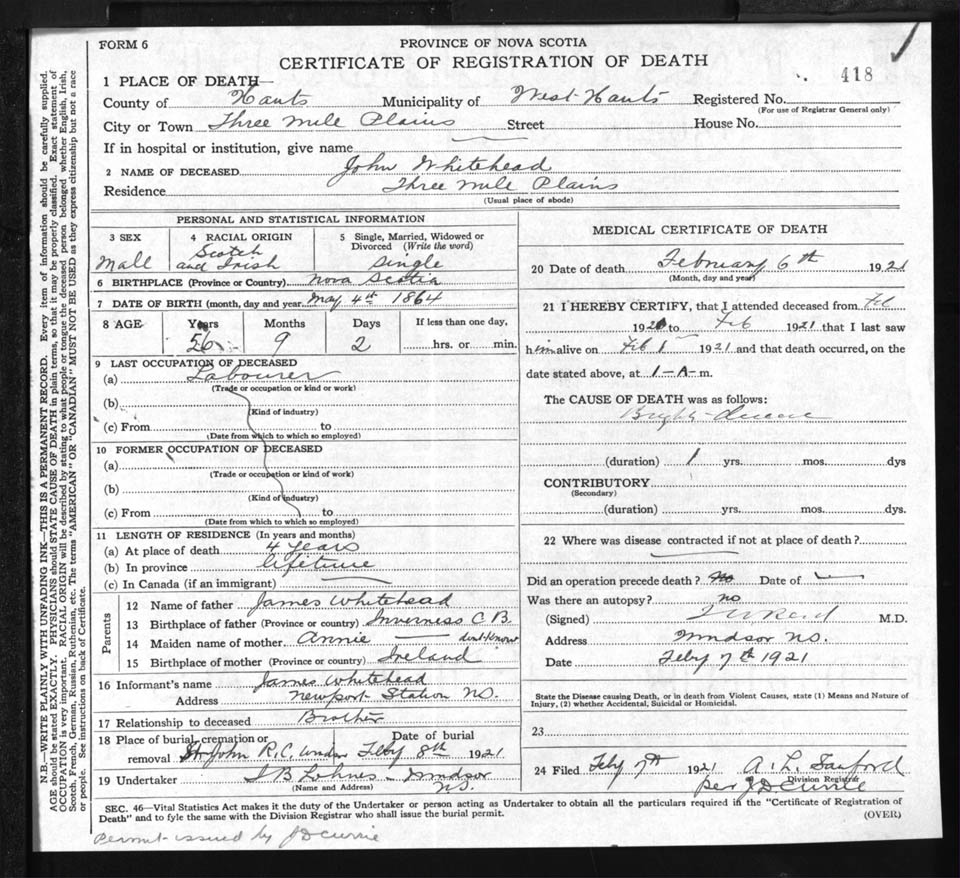 N.B.—WRITE PLAINLY WITH UNFADING INK—THIS IS A PERMANENT RECORD. Every item of information should be carefully supplied.
AGE should be stated EXACTLY. PHYSICIANS should STATE CAUSE OF DEATH in plain terms, so that it may be properly classified. Exact statement of
OCCUPATION is very important. RACIAL ORIGIN will be described by stating to what people or tongue the deceased person belonged whether English, Irish,
Scotch, French, German, Russian, Ruthenian, etc. The terms "AMERICAN" OR "CANADIAN" MUST NOT BE USED as they express citizenship but not a race
or people. See instructions on back of Certificate.
FORM 6
PROVINCE OF NOVA SCOTIA
CERTIFICATE OF REGISTRATION OF DEATH
418
1 PLACE OF DEATH—
County of Hants Municipality of West Hants Registered No.
(For use of Registrar General only)
City or Town Three Mile Plains Street House No.
If in hospital or institution, give name
2 NAME OF DECEASED John Whitehead
Residence Three Mile Plains
(Usual place of abode)
PERSONAL AND STATISTICAL INFORMATION
3 SEX 4 RACIAL ORIGIN 5 Single, Married, Widowed or
Divorced (Write the word)
Mall Scotch and Irish Single
6 BIRTHPLACE (Province or Country) Nova Scotia
7 DATE OF BIRTH (month, day and year) May 4th 1864
8 AGE Years Months Days If less than one day,
56 9 2 hrs. or min.
9 LAST OCCUPATION OF DECEASED
(a) Labourer
(Trade or occupation or kind or work)
(b)
(Kind of industry)
(c) From to
(Date from which to which so employed)
10 FORMER OCCUPATION OF DECEASED
(a)
(Trade or occupation or kind of work)
(b)
(Kind of industry)
(c) From to
(Date from which to which so employed)
11 LENGTH OF RESIDENCE (In years and months)
(a) At place of death 4 years
(b) In province lifetime
(c) In Canada (if an immigrant)
Parents
12 Name of father James Whitehead
13 Birthplace of father (Province or country) Inverness C.B.
14 Maiden name of mother Annie — dont know
15 Birthplace of mother (Province or country) Ireland
16 Informant's name James Whitehead
Address Newport Station N.S.
17 Relationship to deceased Brother
18 Place of burial, cremation or Date of burial
removal St John R.C. Feby 8th 1921
19 Undertaker Windsor
(Name and Address) N.S.
MEDICAL CERTIFICATE OF DEATH
20 Date of death February 6th 1921
(Month, day and year)
21 I HEREBY CERTIFY, that I attended deceased from Feb
1920 to Feb 1921 that I last saw
him alive on Feb 1 1921 and that death occurred, on the
date stated above, at 1-A-m.
The CAUSE OF DEATH was as follows:
Brights disease
(duration) 1 yrs. mos. dys
CONTRIBUTORY
(Secondary)
(duration) yrs. mos. dys.
22 Where was disease contracted if not at place of death?
Did an operation precede death? No Date of
Was there an autopsy? no
(Signed) Reid M.D.
Address Windsor N.S.
Date Feby 7th 1921
State the Disease causing Death, or in death from Violent Causes, state (1) Means and Nature of
Injury, (2) whether Accidental, Suicidal or Homicidal.
23
24 Filed Feby 7th 1921 A. L. Sanford
Division Registrar
per J D Currie
SEC. 46—Vital Statistics Act makes it the duty of the Undertaker or person acting as Undertaker to obtain all the particulars required in the "Certificate of Registration of
Death" and to fyle the same with the Division Registrar who shall issue the burial permit.
(OVER)
Permit issued by J D Currie